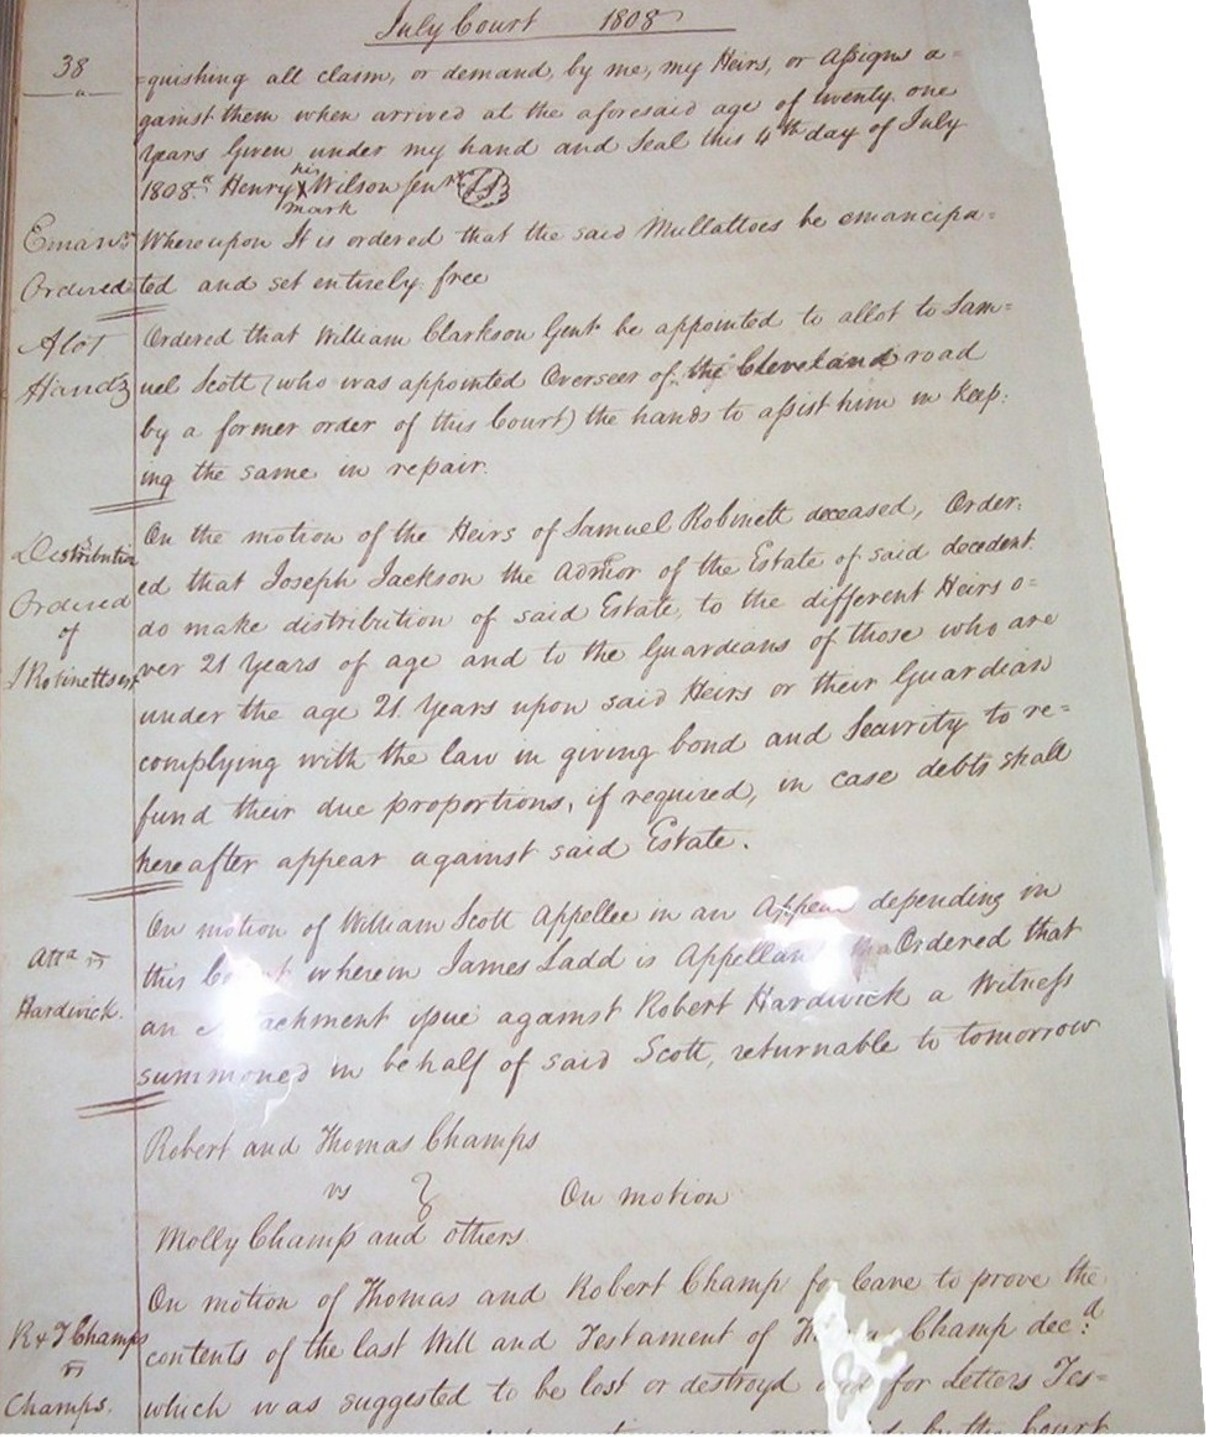 July Court 1808
38
=quishing all claim, or demand, by me, my Heirs, or Assigns a=
gainst them when arrived at the aforesaid age of twenty one
Years Given under my hand and Seal this 4th day of July
his
1808. Henry X Wilson Senr LS
mark
Emann Whereupon It is ordered that the said Mullattoes be emancipa=
Ordered ted and set entirely free
Alot Ordered that William Clarkson Gent be appointed to allot to Sam=
Hands uel Scott (who was appointed Overseer of the Cleveland road
by a former order of this Court) the hands to assist him in keep:
ing the same in repair.
On the motion of the Heirs of Samuel Robinett deceased, Order:
Distribution ed that Joseph Jackson the Admor of the Estate of said decedent
Ordered do make distribution of said Estate, to the different Heirs o=
of ver 21 Years of age and to the Guardians of those who are
S Robinetts est under the age 21 Years upon said Heirs or their Guardian
complying with the law in giving bond and Security to re=
fund their due proportions, if required, in case debts shall
hereafter appear against said Estate.
On motion of William Scott Appellee in an Appeal depending in
Atta vs this Court wherein James Ladd is Appellant Ordered that
Hardwick. an attachment issue against Robert Hardwick a Witness
summoned in behalf of said Scott, returnable to tomorrow
Robert and Thomas Champs
vs } On motion
Molly Champ and others
On motion of Thomas and Robert Champ for leave to prove the
R & T Champs contents of the last Will and Testament of Champ decd
vs
Champs. which was suggested to be lost or destroyd for Letters Tes=
by the Court